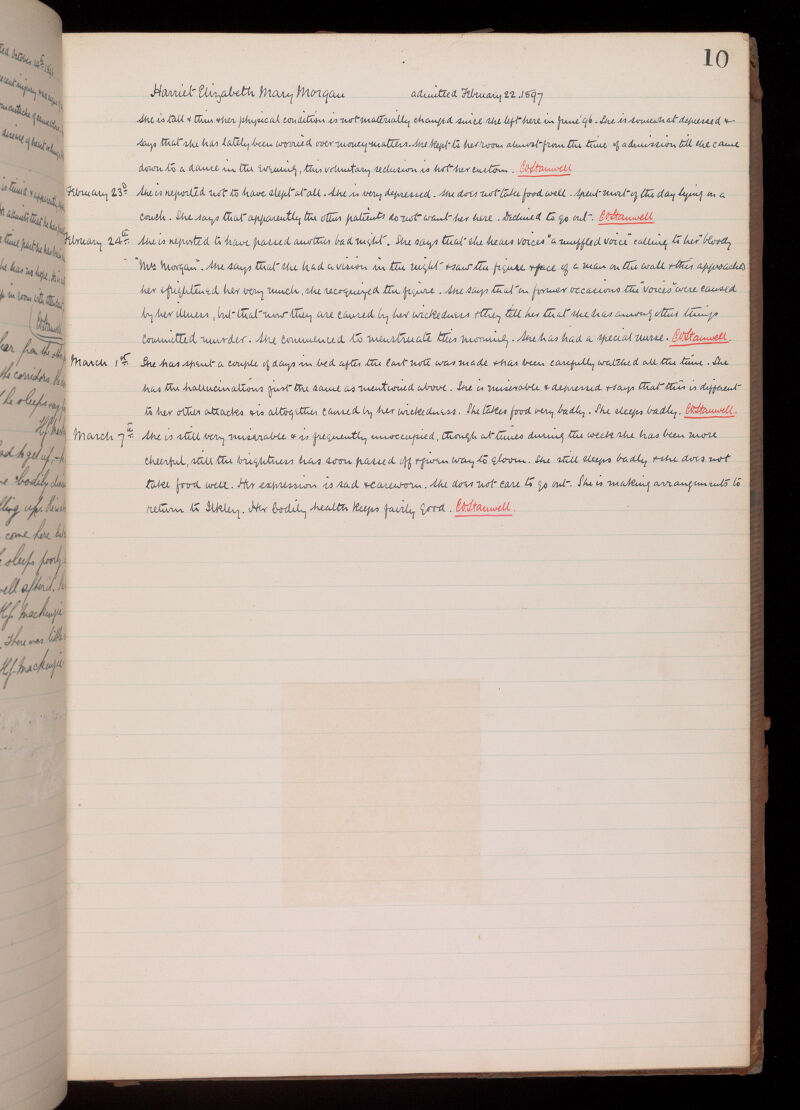 10
Harriet Elizabeth Mary Morgan admitted February 22. 1897
She is tall & thin & her physical condition is not materially changed since she left here in June 96. She is somewhat depressed &
says that she has lately been worried over money matters. She kept to her room almost from the time of admission till she came
down to a dance in the evening, this voluntary seclusion is not her custom. CvStanwell
February 23rd She is reported not to have slept at all. She is very depressed. She does not take food well. Spent most of the day lying on a
couch. She says that apparently the other patients do not want her here. Declined to go out. CvStanwell
February 24th She is reported to have passed another bad night. She says that she hears voices "a muffled voice" calling to her "bloody
Mrs Morgan". She says that she had a vision in the night & saw the figure & face of a man on the wall & this approached
her & frightened her very much, she recognized the figure. She says that on former occasions the "voices" were caused
by her illness, but that now they are caused by her wickedness & they tell her that she has among other things
committed murder. She commenced to menstruate this morning. She has had a special nurse. CvStanwell.
March 1st She has spent a couple of days in bed after the last note was made & has been carefully watched all the time. She
has the hallucinations just the same as mentioned above. She is miserable & depressed & says that this is different
to her other attacks & is altogether caused by her wickedness. She takes food very badly. She sleeps badly. CvStanwell.
March 7th She is still very miserable & is frequently unoccupied, though at times during the week she has been more
cheerful, still the brightness has soon passed off & given way to gloom. She still sleeps badly & she does not
take food well. Her expression is sad & careworn. She does not care to go out. She is making arrangements to
return to Ilkley. Her bodily health keeps fairly good. CvStanwell.
the corridors.
he sleeps
bodily
come here
sleeps poorly
Hf. Mackenzie
There was little
Hf. Mackenzie